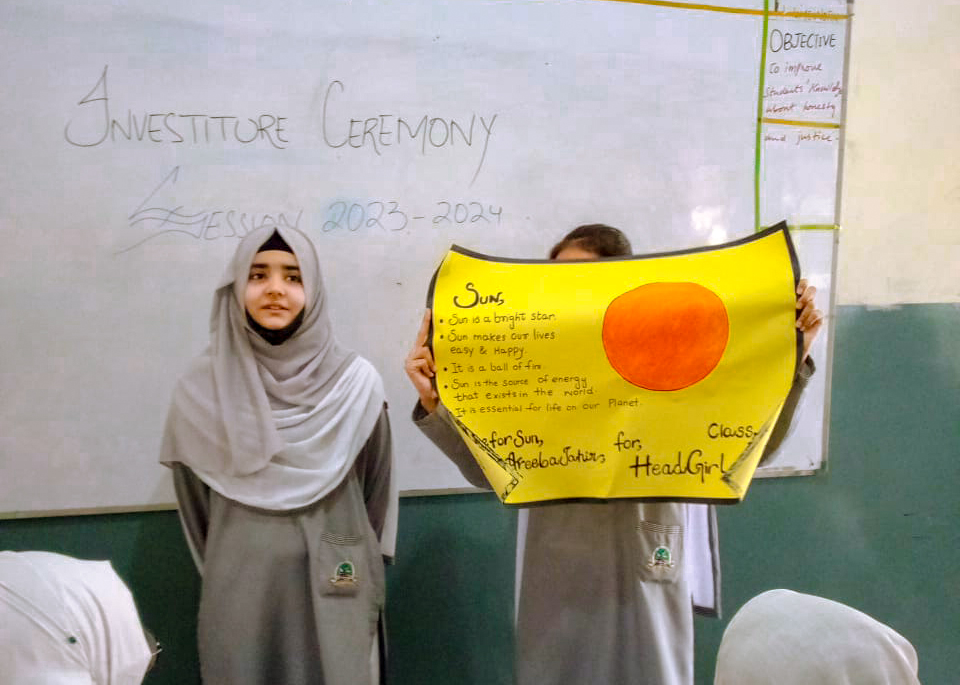 INVESTITURE CEREMONY
SESSION 2023-2024
OBJECTIVE
To improve
Students' Knowledge
about honesty
and justice.
Sun,
• Sun is a bright star.
• Sun makes our lives
easy & Happy.
• It is a ball of fire.
• Sun is the source of energy
that exists in the world
It is essential for life on our Planet.
for Sun, for, Class,
Areeba Tahir, Head Girl